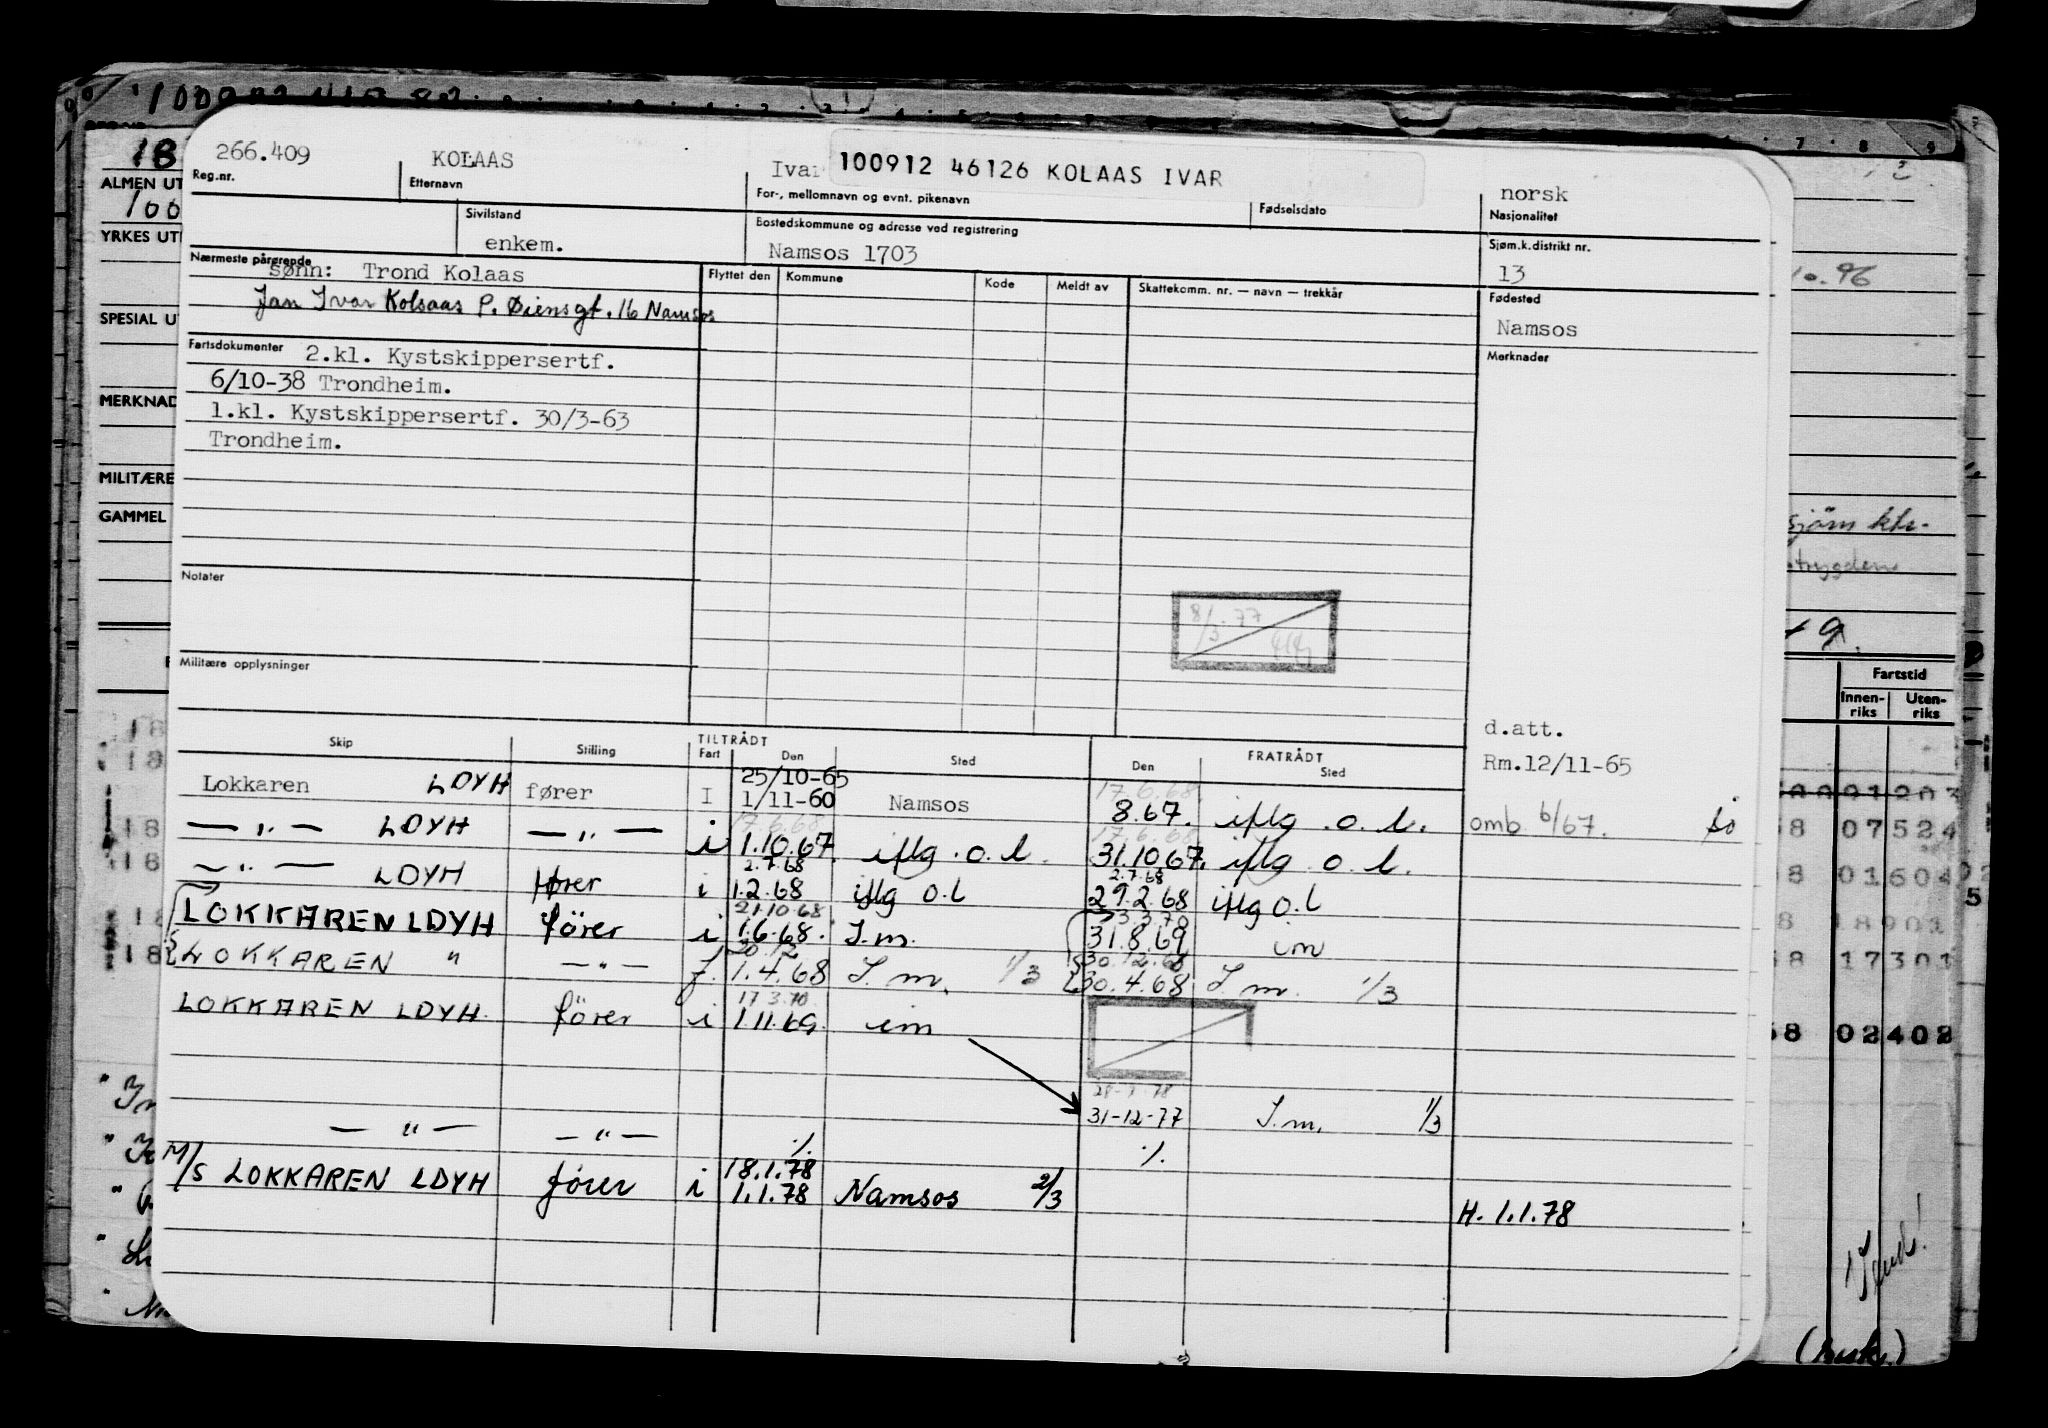 266.409 KOLAAS Ivar 100912 46126 KOLAAS IVAR norsk
Reg.nr. Etternavn For-, mellomnavn og evnt. pikenavn Fødselsdato Nasjonalitet
Sivilstand Bostedskommune og adresse ved registrering Sjøm.k.distrikt nr.
enkem. Namsos 1703 13
Nærmeste pårørende Flyttet den Kommune Kode Meldt av Skattekomm. nr. — navn — trekkår Fødested
sønn: Trond Kolaas
Jan Ivar Kolsaas P. Øiensgt. 16 Namsos
Namsos
Fartsdokumenter 2.kl. Kystskippersertf. Merknader
6/10-38 Trondheim.
1.kl. Kystskippersertf. 30/3-63
Trondheim.
Notater
8/3.77
Militære opplysninger
d.att.
Rm.12/11-65
Skip Stilling TILTRÅDT Fart Den Sted FRATRÅDT Den Sted
25/10-65 17.6.68.
Lokkaren LDYH fører I 1/11-60 Namsos 8.67. iflg. o. l. omb 6/67.
17.6.68 17.6.68
— " — LDYH — " — i 1.10.67. iflg. o. l. 31.10 67. iflg o. l.
2.7.68 2.7.68
— " — LDYH fører i 1.2.68 iflg o.l 29.2.68 iflg o.l
21.10.68 3.3.70
LOKKAREN LDYH förer i 1.6.68. I.m. 31.8.69 im
30.12 30.12.68
LOKKAREN " — " — f. 1.4.68 I.m. 1/3 30.4.68 I.m. 1/3
17.3.70.
LOKKAREN LDYH. förer i 1.11.69. im
— " — — " — ./. 31-12-77 I.m. 1/3
./.
18.1.78
M/S LOKKAREN LDYH fører i 1.1.78 Namsos 2/3 H. 1.1.78
ALMEN UT
YRKES UT
SPESIAL U
MERKNAD
MILITÆRE
GAMMEL
10.96
sjøm ktr.
Fartstid
Innen-riks Uten-riks
07524
01604
18901
17301
02402